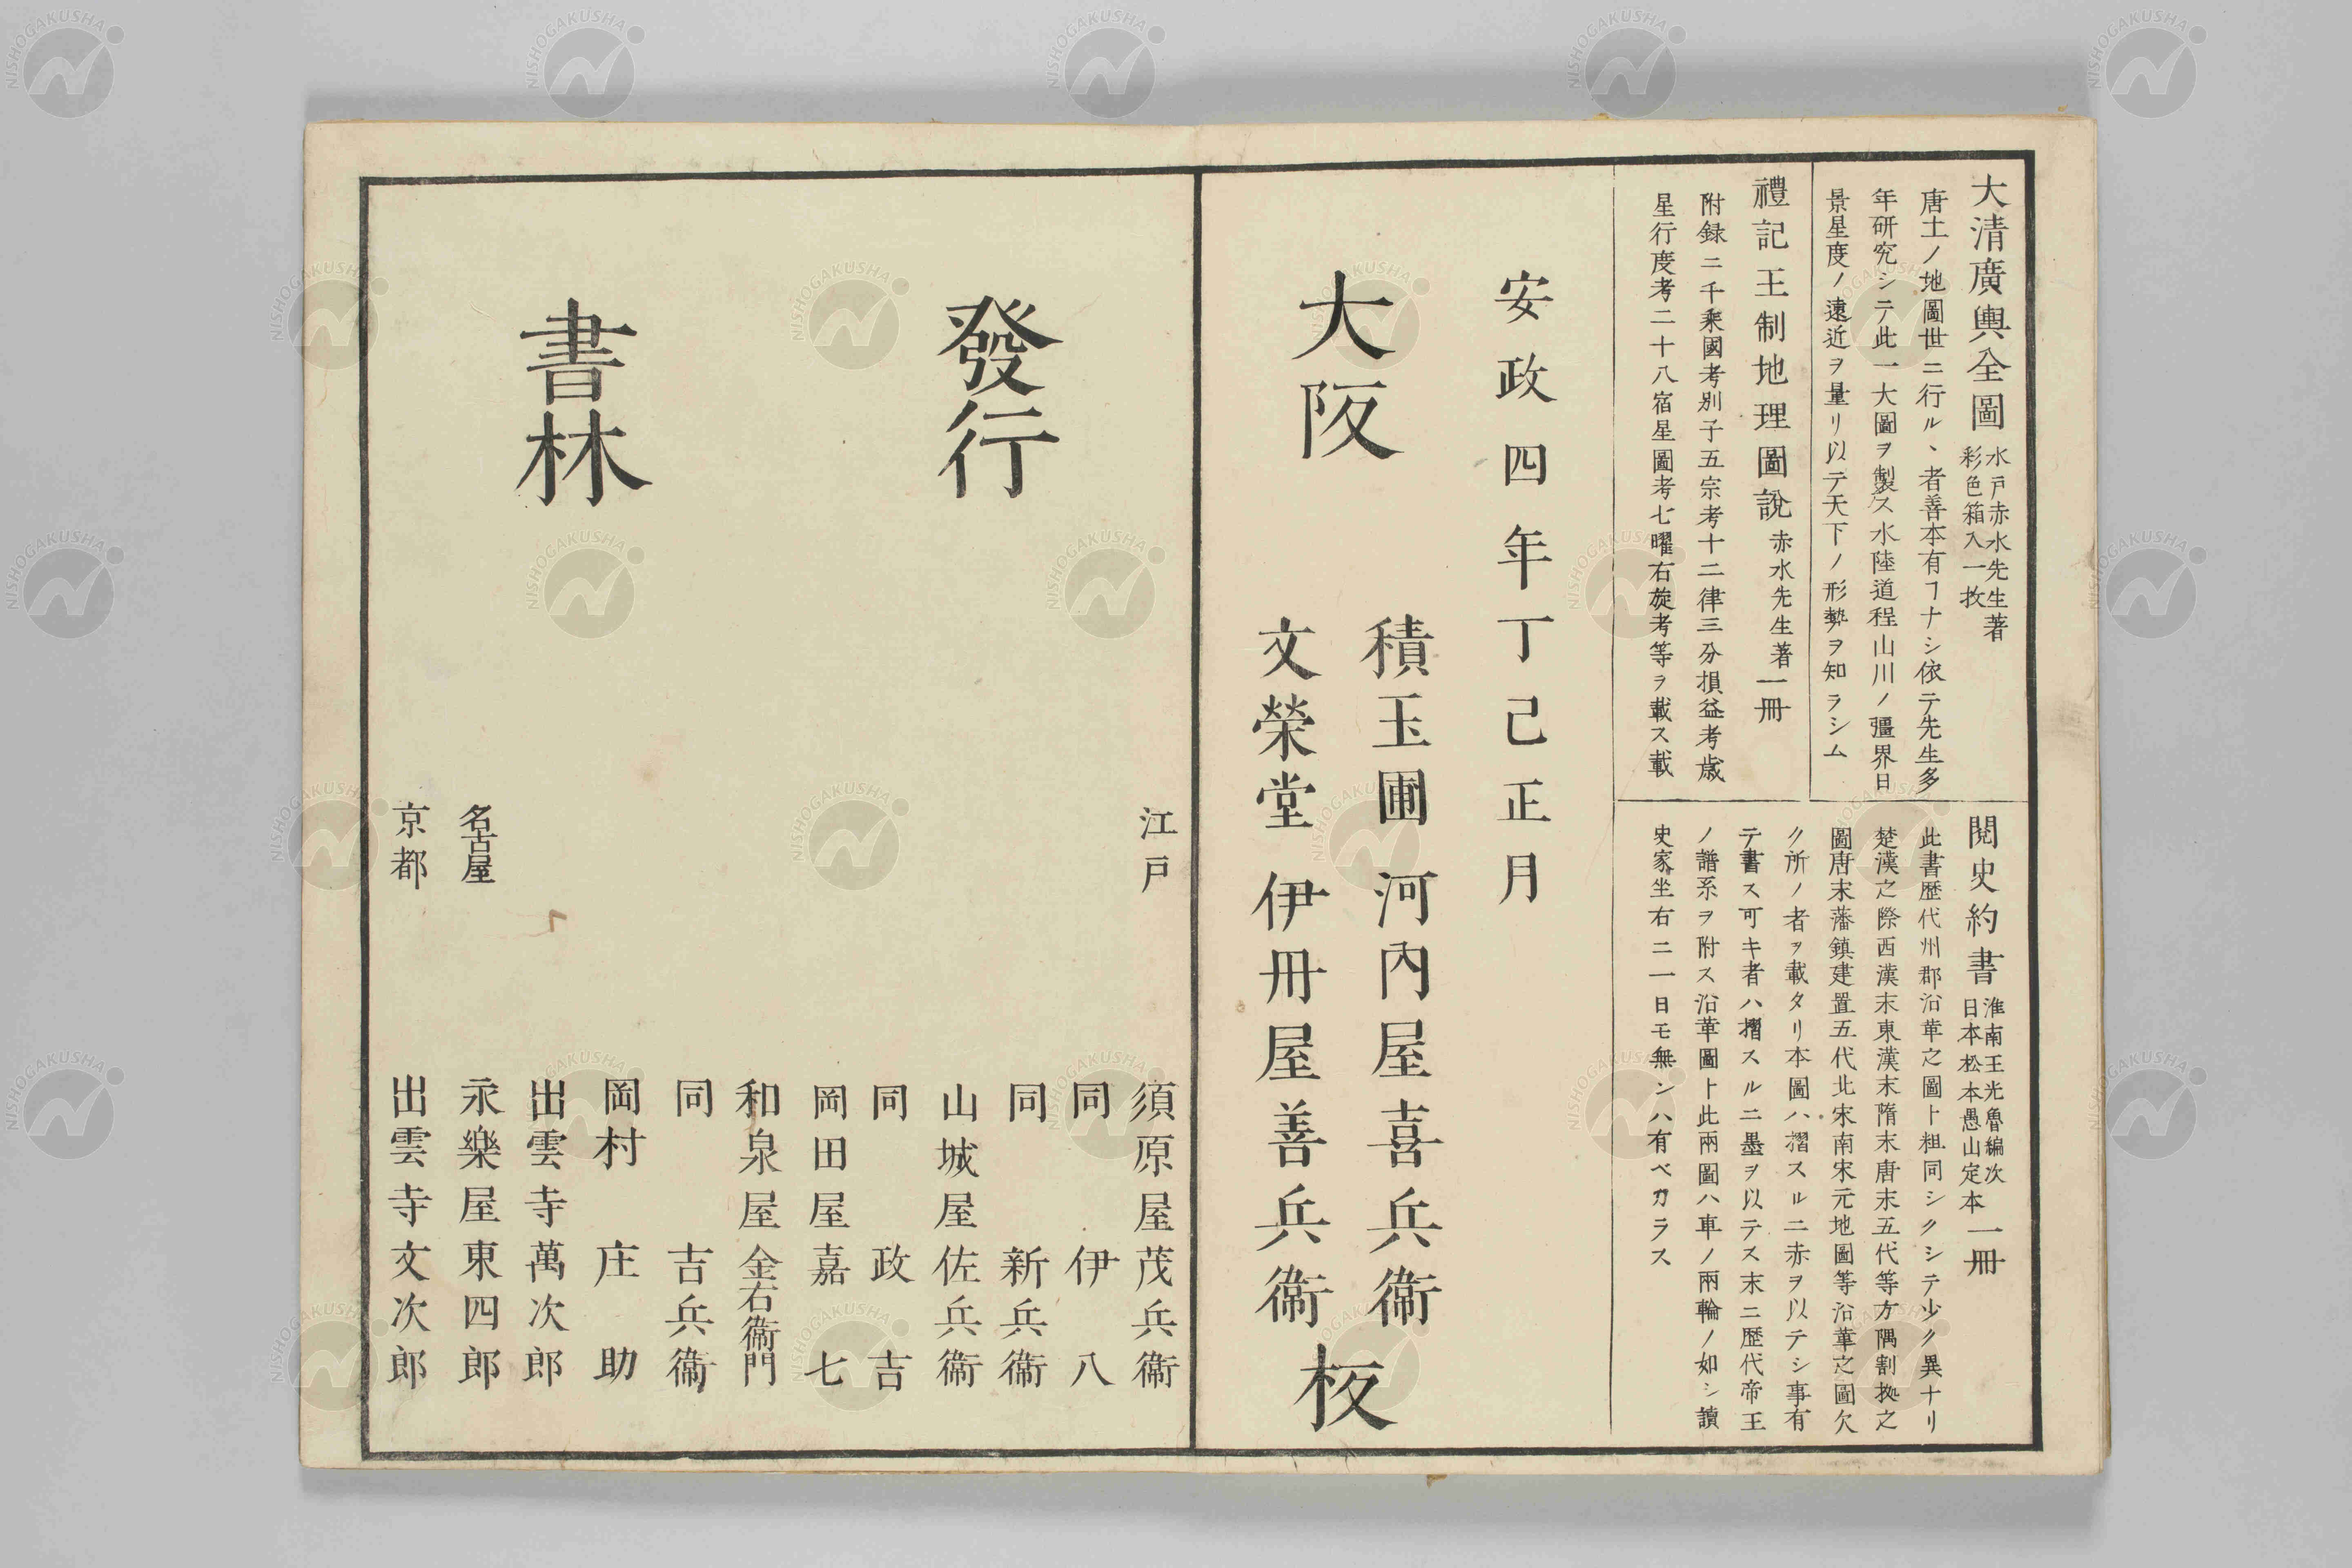 大清廣輿全圖
水戸赤水先生著
彩色箱入一枚
唐土ノ地圖世ニ行ル丶者善本有ヿナシ依テ先生多
年研究シテ此一大圖ヲ製ス水陸道程山川ノ彊界日
景星度ノ遠近ヲ量リ以テ天下ノ形勢ヲ知ラシム
禮記王制地理圖說 赤水先生著 一冊
附録ニ千乘國考別子五宗考十二律三分損益考歳
星行度考二十八宿星圖考七曜右旋考等ヲ載ス載
閱史約書
淮南王光魯編次
日本松本愚山定本
一冊
此書歴代州郡沿革之圖ト粗同シクシテ少ク異ナリ
楚漢之際西漢末東漢末隋末唐末五代等方隅割拠之
圖唐末藩鎮建置五代北宋南宋元地圖等沿革之圖欠
ク所ノ者ヲ載タリ本圖ハ摺スルニ赤ヲ以テシ事有
テ書ス可キ者ハ摺スルニ墨ヲ以テス末ニ歴代帝王
ノ譜系ヲ附ス沿革圖ト此兩圖ハ車ノ兩輪ノ如シ讀
史家坐右ニ一日モ無ンハ有ベカラス
安政四年丁巳正月
大阪
積玉圃 河內屋喜兵衞
文榮堂 伊丹屋善兵衞
板
發行
書林
江戸
須原屋茂兵衞
同 伊八
同 新兵衞
山城屋佐兵衞
同 政吉
岡田屋嘉七
和泉屋金右衞門
同 吉兵衞
岡村庄助
出雲寺萬次郎
名古屋
永樂屋東四郎
京都
出雲寺文次郎
NISHOGAKUSHA